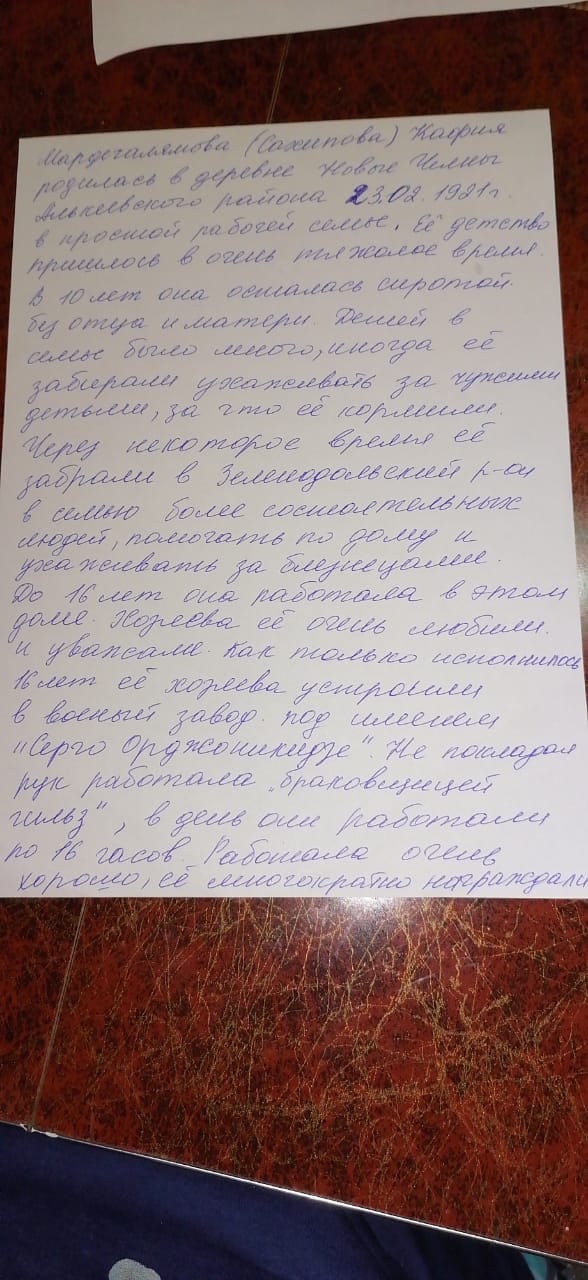 Мардегалямова (Сахипова) Кафия
родилась в деревне Новые Челны
Алькеевского района 23.02.1921г.
в простой рабочей семье. Её детство
пришлось в очень тяжолое время.
В 10 лет она осталась сиротой.
без отца и матери. Детей в
семье было много, иногда её
забирали ухаживать за чужими
детьми, за что её кормили.
Через некоторое время её
забрали в Зеленодольский р-он
в семью более состоятельных
людей, помогать по дому и
ухаживать за близнецами.
До 16 лет она работала в этом
доме. Хозяева её очень любили.
и уважали. Как только исполнилось
16 лет её хозяева устроили
в военый завод. под именем
"Серго Орджоникидзе". Не покладая
рук работала "браковщицей
гильз", в день они работали
по 16 часов. Работала очень
хорошо, её многократно награждали